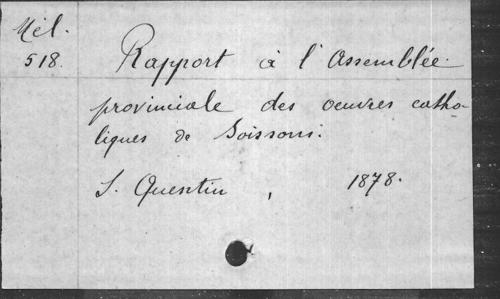 Mél.
518.
Rapport à l'Assemblée
provinciale des oeuvres catho-
liques de Soissons.
S. Quentin, 1878.